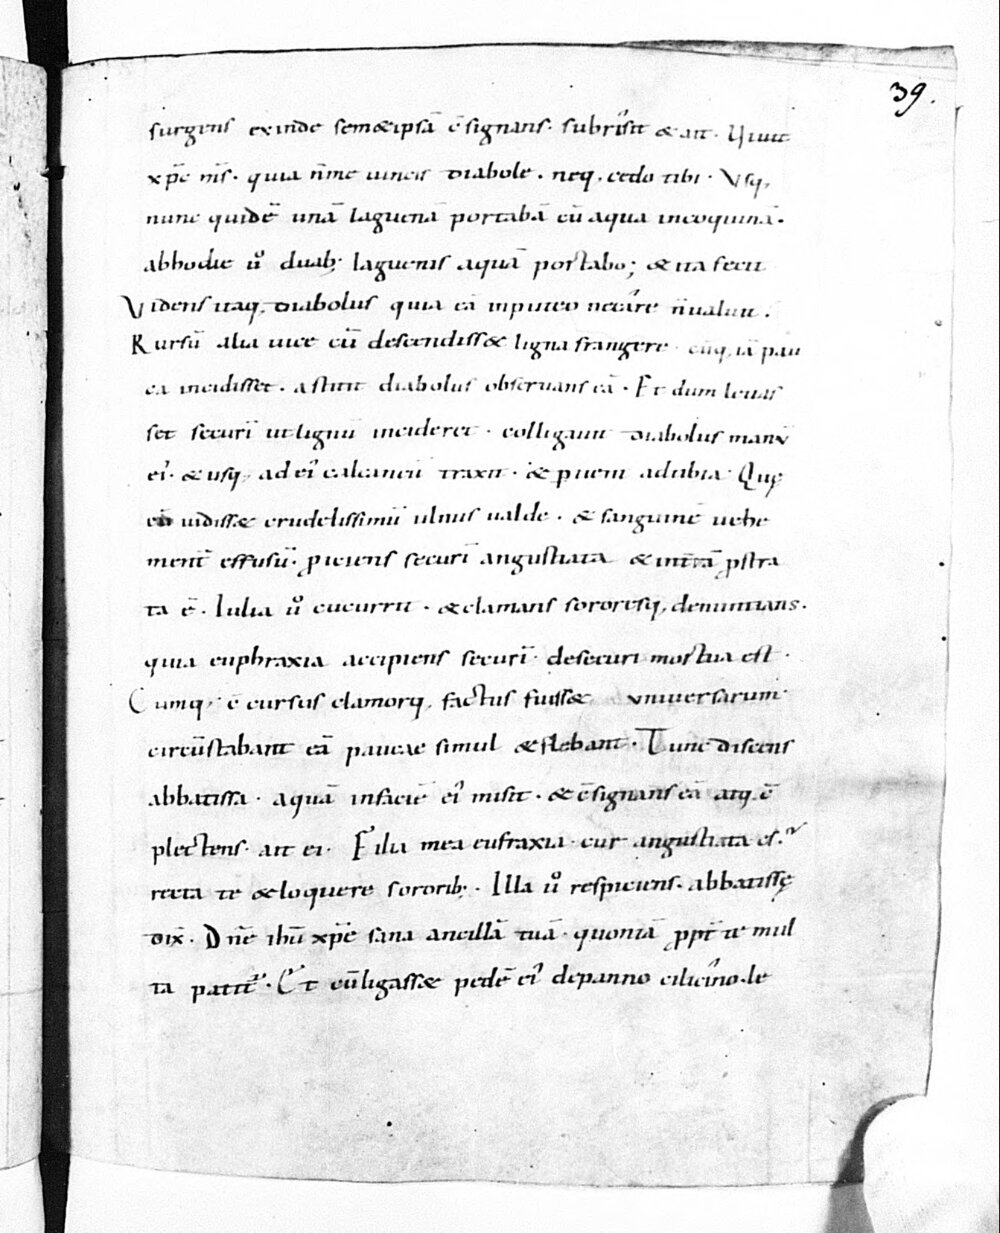 39.
surgens exinde sem&ipsā c̄signans. subrisit & ait. Viuit
xp̄c nr̄s. quia n̄me uincis diabole. neq, cedo tibi. Vsq,
nunc quidē unā laguenā portabā cū aqua incoquinā.
abhodie ū duab; laguenis aquā portabo; & ita fecit
Videns itaq, diabolus quia eā inputeo necare n̄ualuit.
Rursū alia uice cū descendiss& ligna frangere. cūq, iā pau
ca incidisset. astitit diabolus obseruans eā. Et dum leuas
set securī utlignū incideret. colligauit diabolus manū
ei'. & usq, ad ei' calcaneū traxit. & puenit adtibia. Quę
cū uidiss& crudelissimū ulnus ualde. & sanguinē uehe
ment̄ effusū. piciens securī angustiata & int̄rā pstra
ta ē. Iulia ū cucurrit. & clamans sororesq, denuntians.
quia euphraxia accipiens securī. desecuri mortua est.
Cumq, c̄cursus clamorq, factus fuiss& vniuersarum.
circūstabant eā paucae simul & flebant. Tunc discens
abbatissa. aquā infaciē ei' misit. & c̄signans eā atq, c̄
plectens. ait ei. Filia mea eufraxia. cur angustiata es.
recta te & loquere sororib;. Illa ū respiciens. abbatissę
dix̄. Dn̄e ihū xp̄e sana ancillā tuā. quoniā ppt̄ te mul
ta patit'. Et cūligass& pedē ei' depanno cilicino. le